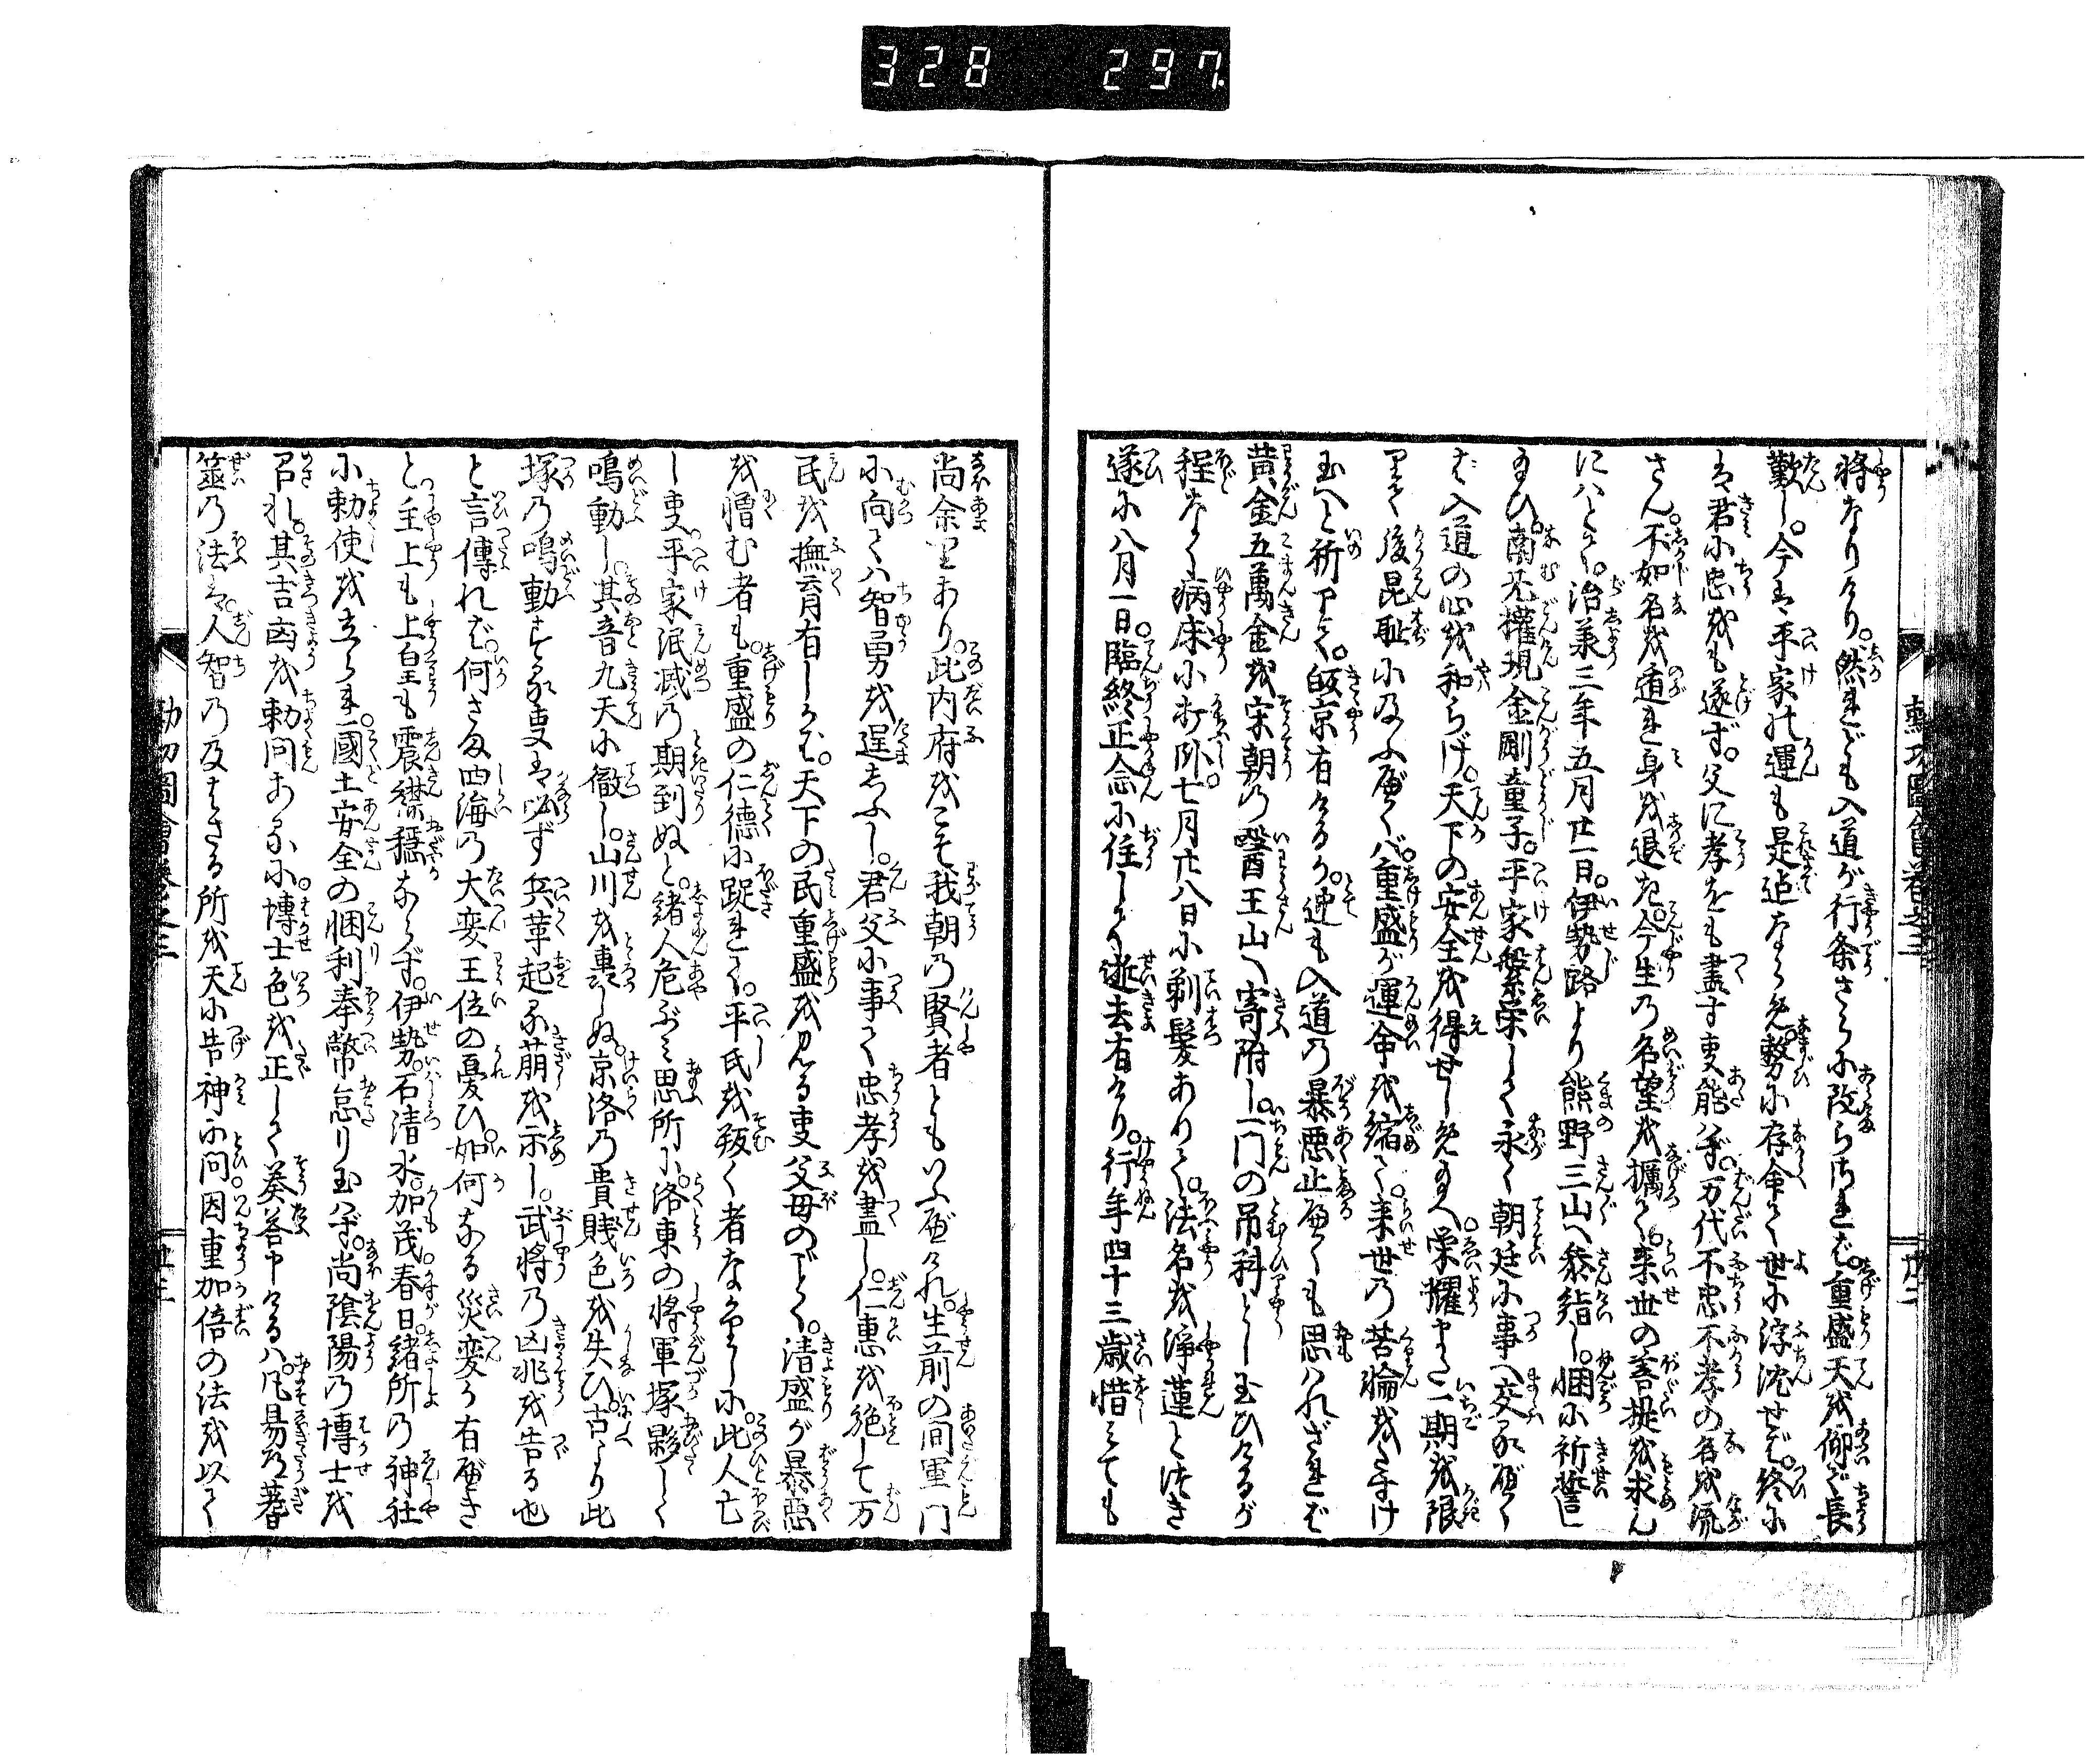 328 297
将なりけり。然れども入道が行条さらに改らざれば。重盛天を仰ぎ長
歎し。今は平家の運も是迄ならん。憖に存命て世に浮沈せば。終に
は君に忠をも遂ず。父に孝をも盡す事能はず。万代不忠不孝の名を流
さん。不如名を遁れ身を退き。今生の名望を擲て。来世の菩提を求ん
にはとて。治承三年五月廿一日。伊勢路より熊野三山へ参詣し。悃に祈誓し
玉ひ。南無権現金剛童子。平家繁栄して永く朝廷に事へ交る可くば
入道の心を和らげ。天下の安全を得せしめ玉へ。栄耀また一期を限
りて後昆恥に及ふ可くば。重盛が運命を縮て。来世の苦輪をたすけ
玉へと祈りて。皈京有けるが。迚も入道の暴悪止可くも思はれざれば
黄金五萬金を宋朝の醫王山へ寄附し。一門の吊料とし玉ひけるが
程なく病床に打臥。七月廿八日に剃髪ありて。法名を浄蓮とつき
遂に八月一日。臨終正念に住して逝去有けり。行年四十三歳惜みても
尚余りあり。此内府をこそ我朝の賢者ともいふ可けれ。生前の間軍門
に向ては智勇を逞ふし。君父に事て忠孝を盡し。仁恵を絶して万
民を撫育有しかば。天下の民重盛を見る事父母のごとく。清盛が暴悪
を憎む者も。重盛の仁徳に跪きて。平氏を叛く者なかりしに。此人亡
し事平家泯滅の期到ぬと。緒人危ぶみ思所に。洛東の将軍塚夥しく
鳴動し。其音九天に徹し。山川を轟しぬ。京洛の貴賎色を失ひ。古より此
塚の鳴動する事は必ず兵革起る萠を示し。武将の凶兆を告る也
と言傳れば。何さま四海の大変王位の憂ひ。如何なる災変か有可き
と主上も上皇も震襟穏ならず。伊勢。石清水。加茂。春日。緒所の神社
に勅使を立られ。國土安全の悃利奉幣怠り玉はず。尚陰陽の博士を
召れ。其吉凶を勅問あるに。博士色を正して奏答申けるは。凡易道蓍
筮の法は。人智の及ばざる所を天に告神に問。因重加倍の法を以て